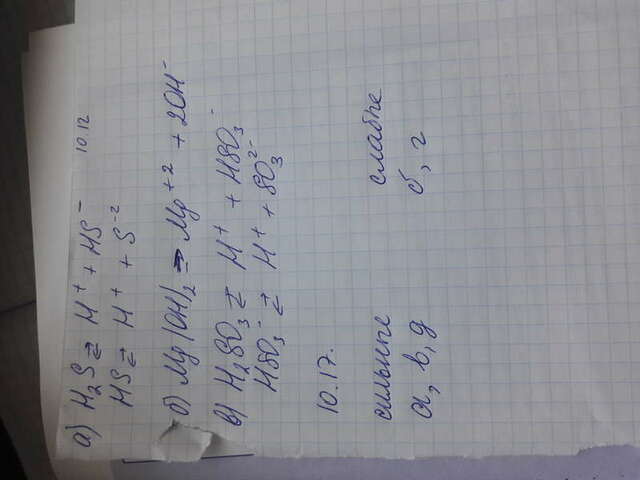 10.12
а) H₂S ⇄ H⁺ + HS⁻
HS ⇄ H⁺ + S⁻²
б) Mg(OH)₂ ⇒ Mg⁺² + 2OH⁻
в) H₂SO₃ ⇄ H⁺ + HSO₃⁻
HSO₃⁻ ⇄ H⁺ + SO₃²⁻
10.17.
сильные слабые
а, в, д б, г